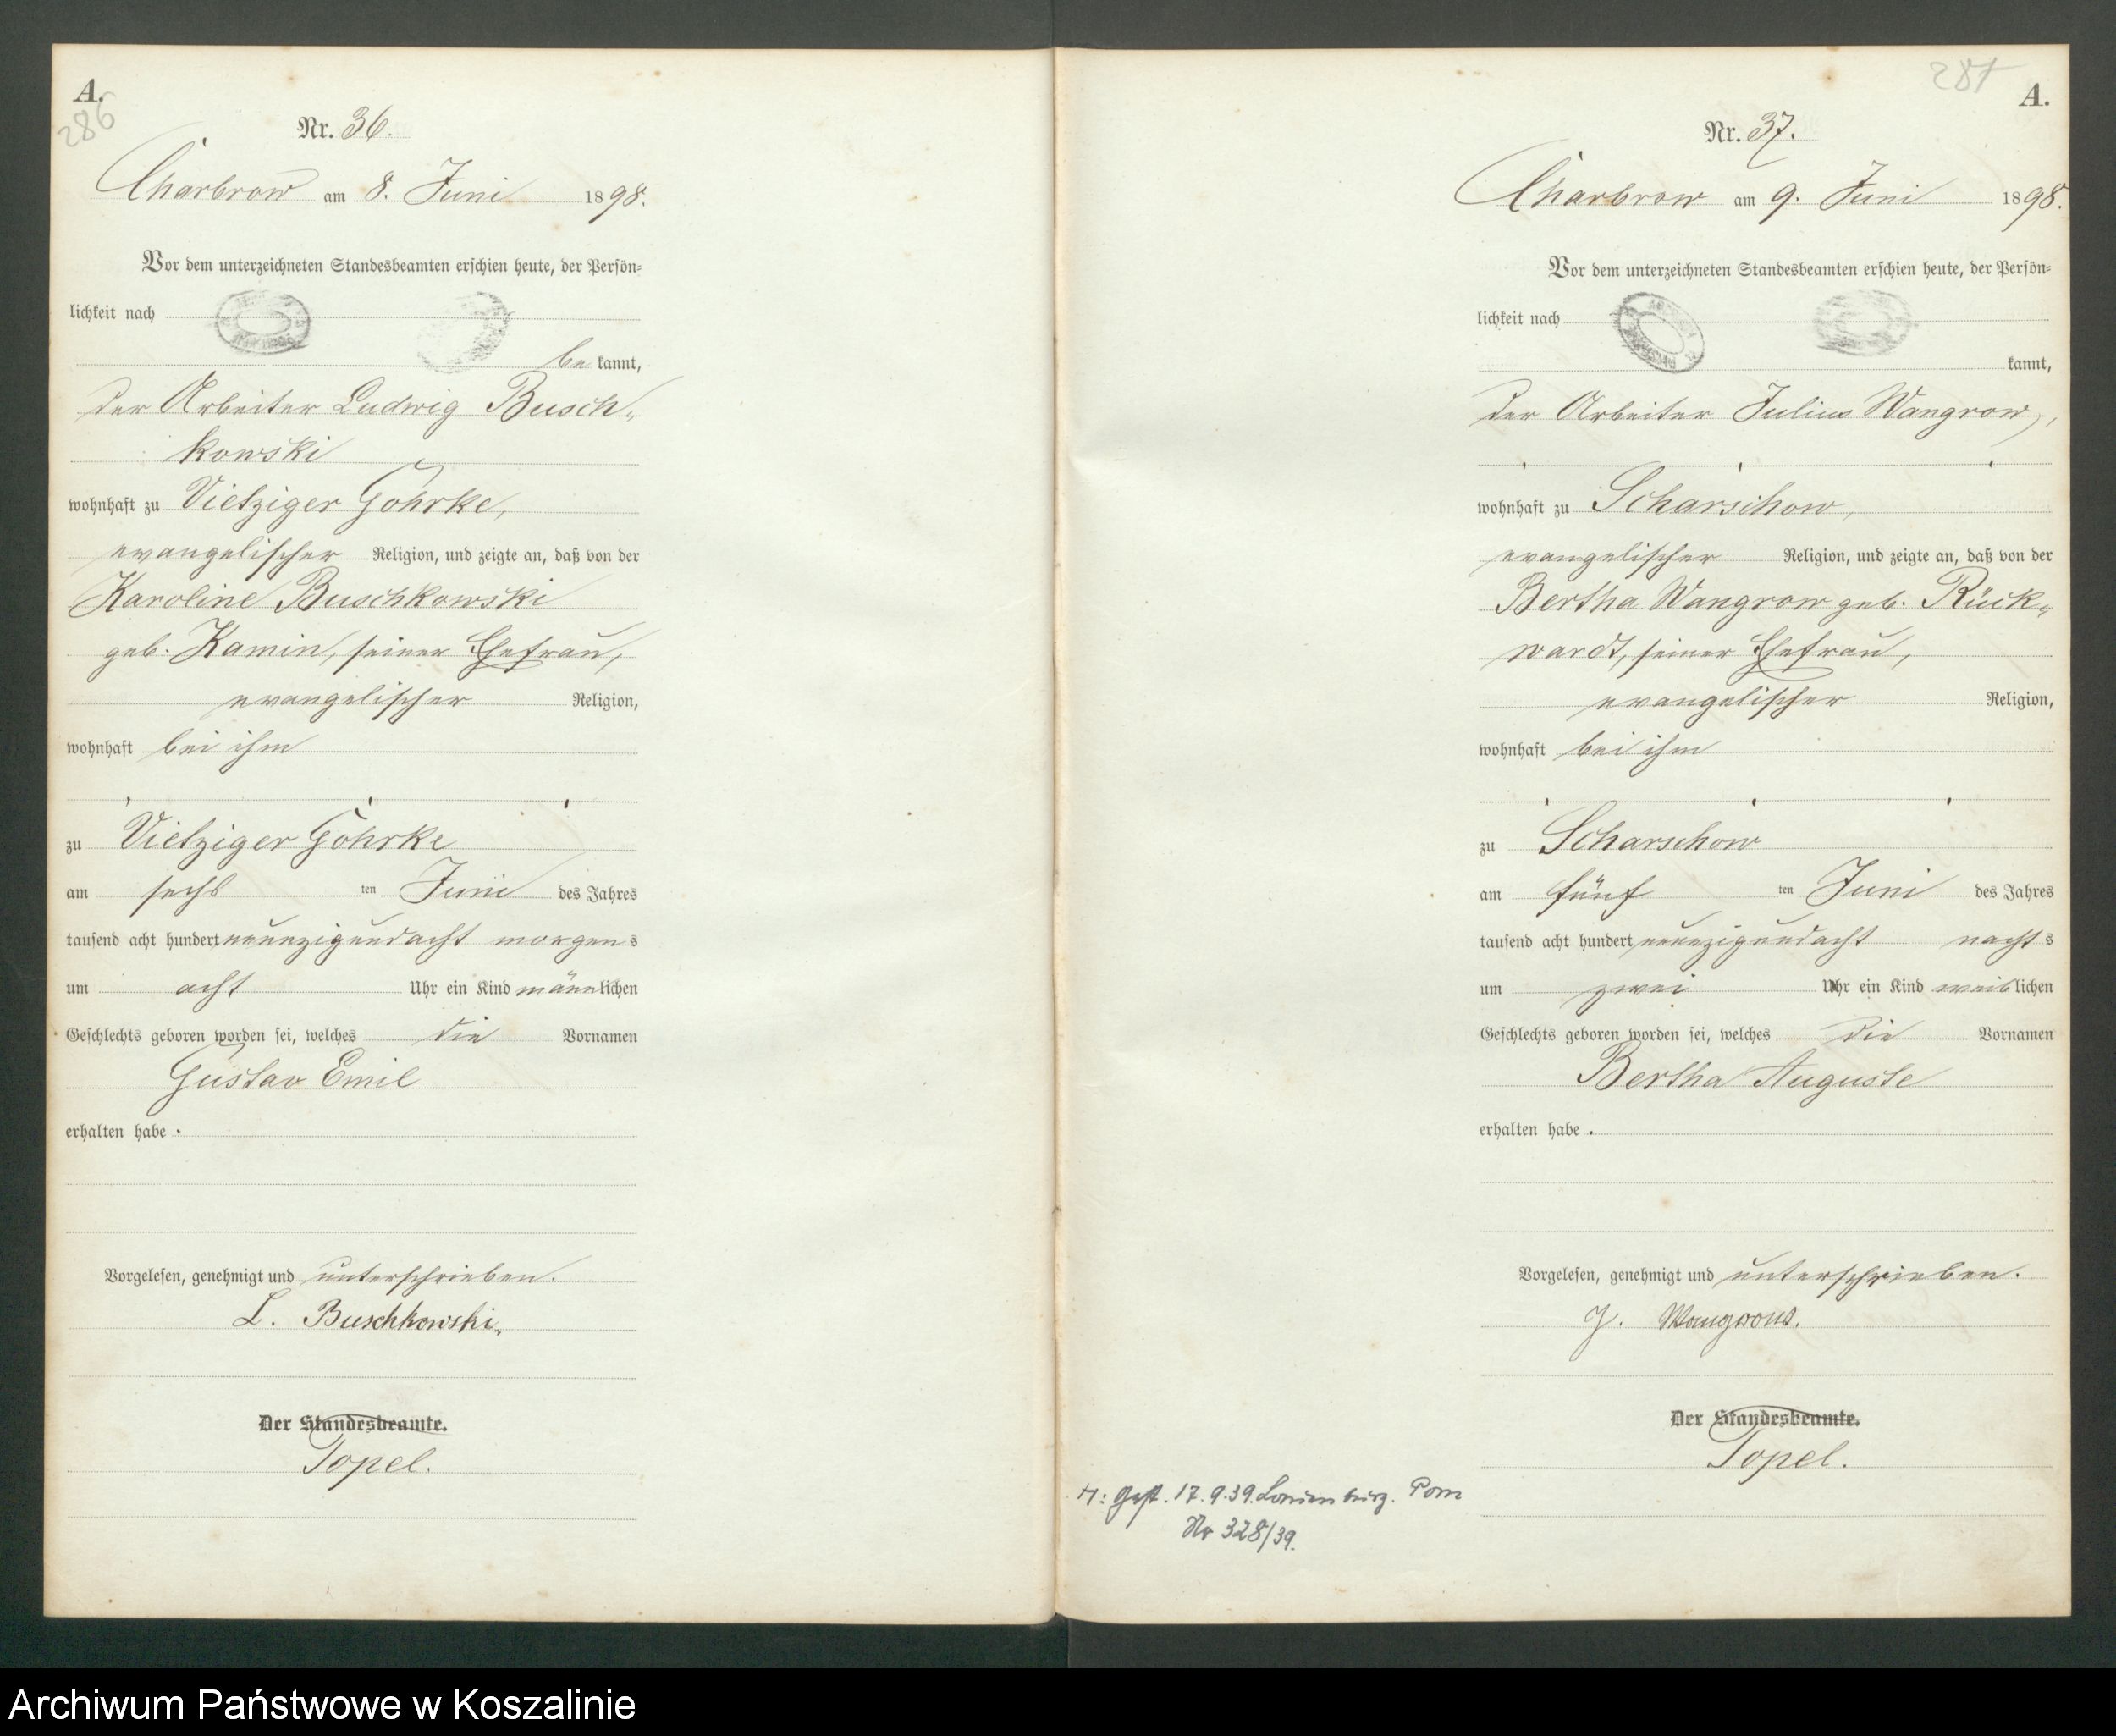 A.
286
Nr. 36.
Charbrow am 8. Juni 1898.
Vor dem unterzeichneten Standesbeamten erschien heute, der Persön-
lichkeit nach
be kannt,
der Arbeiter Ludwig Busch-
kowski
wohnhaft zu Vietziger Göhrke,
evangelischer Religion, und zeigte an, daß von der
Karoline Buschkowski
geb. Kamin, seiner Ehefrau,
evangelischer Religion,
wohnhaft bei ihm
zu Vietziger Göhrke
am sechs ten Juni des Jahres
tausend acht hundert neunzigundacht morgens
um acht Uhr ein Kind männlichen
Geschlechts geboren worden sei, welches die Vornamen
Gustav Emil
erhalten habe.
Vorgelesen, genehmigt und unterschrieben.
L. Buschkowski.
Der Standesbeamte.
Topel.
287
A.
Nr. 37.
Charbrow am 9. Juni 1898.
Vor dem unterzeichneten Standesbeamten erschien heute, der Persön-
lichkeit nach
kannt,
der Arbeiter Julius Wangrow,
wohnhaft zu Scharschow,
evangelischer Religion, und zeigte an, daß von der
Bertha Wangrow geb. Rück-
wardt, seiner Ehefrau,
evangelischer Religion,
wohnhaft bei ihm
zu Scharschow
am fünf ten Juni des Jahres
tausend acht hundert neunzigundacht nachts
um zwei Uhr ein Kind weiblichen
Geschlechts geboren worden sei, welches die Vornamen
Bertha Auguste
erhalten habe.
Vorgelesen, genehmigt und unterschrieben.
J. Wangrow.
Der Standesbeamte.
Topel.
H: Gest. 17.9.39. Lauenburg. Pom
Nr 328/39.
Archiwum Państwowe w Koszalinie